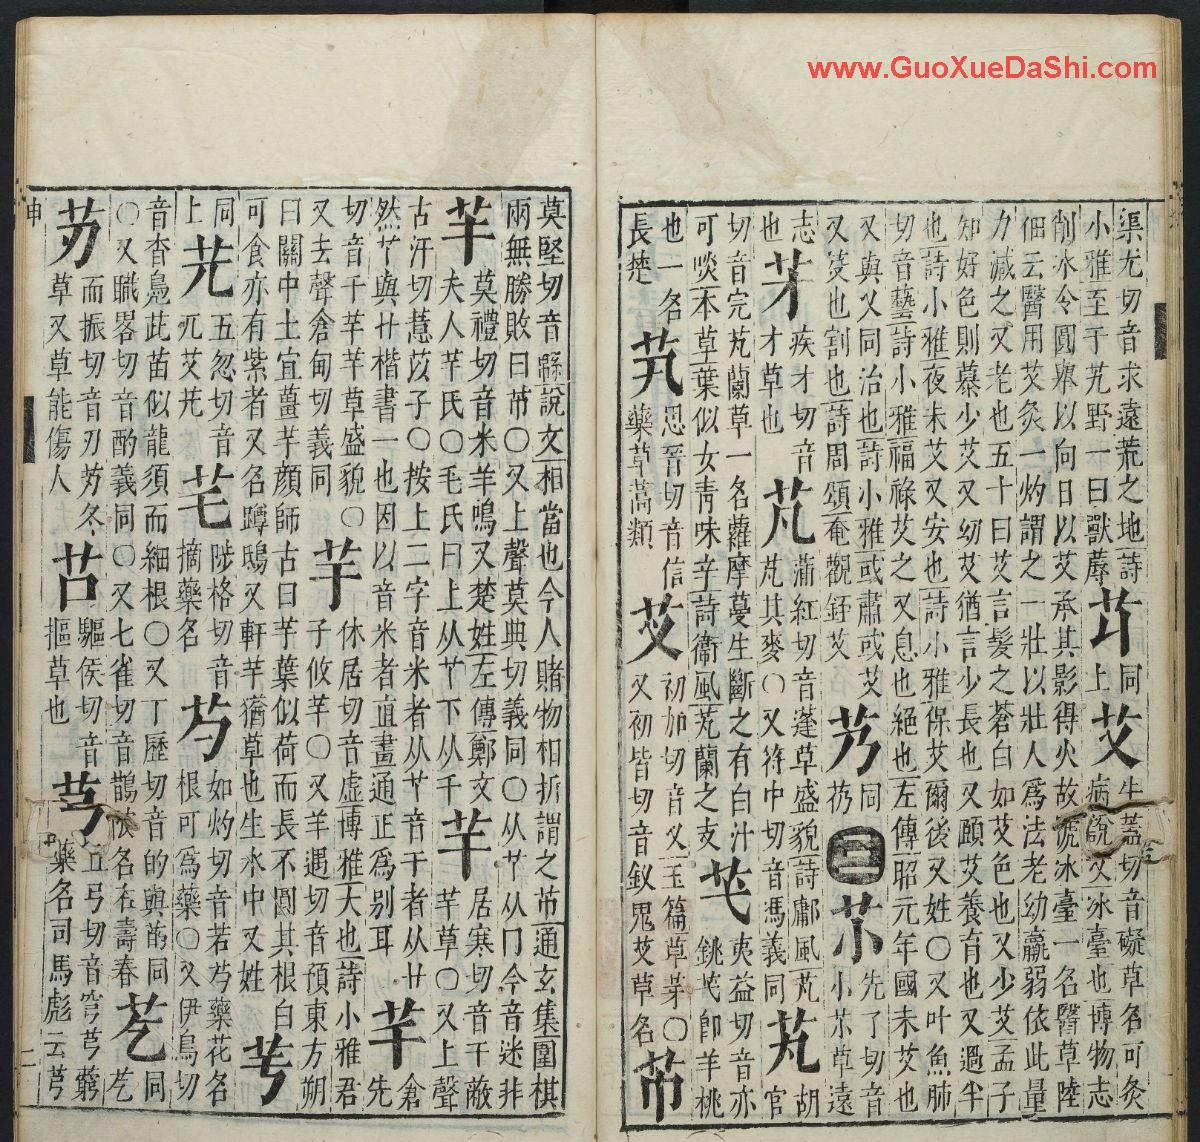 渠尤切音求遠荒之地詩
小雅至于艽野一曰獸蓐
芁
同
上
艾
牛蓋切音礙草名可灸
病說文冰臺也博物志
削冰令圓舉以向日以艾承其影得火故號冰臺一名醫草陸
佃云醫用艾灸一灼謂之一壯以壯人爲法老幼羸弱依此量
力減之又老也五十曰艾言髮之蒼白如艾色也又少艾孟子
知好色則慕少艾又幼艾猶言少長也又頤艾養育也又過半
也詩小雅夜未艾又安也詩小雅保艾爾後又姓〇又叶魚肺
切音藝詩小雅福祿艾之又息也絕也左傳昭元年國未艾也
又與乂同治也詩小雅或肅或艾
又芟也割也詩周頌奄觀銍艾
艿
同
芿
三
先了切音
小草遠
志
也
疾才切音
才草也
芃
蒲紅切音蓬草盛貌詩鄘風芃
芃其麥〇又符中切音馮義同
芄
胡
官
切音完芄蘭草一名蘿摩蔓生斷之有白汁
可啖本草葉似女青味辛詩衞風芄蘭之支
芅
夷益切音亦
銚芅卽羊桃
也一名
長楚
䒖
思晉切音信
藥草蒿類
芆
初加切音叉玉篇草芽〇
又初皆切音釵鬼艾草名
芇
莫堅切音緜說文相當也今人賭物相折謂之芇通玄集圍棋
兩無勝敗曰芇〇又上聲莫典切義同〇从丫从冂今音迷非
芈
莫禮切音米羊鳴又楚姓左傳鄭文
夫人芈氏〇毛氏曰上从丫下从千
芉
居寒切音干敵
芉草〇又上聲
古汗切薏苡子〇按上二字音米者从丫音干者从廾
然丫與廾楷書一也因以音米者直畫通正爲別耳
芊
倉
先
切音千芊芊草盛貌〇
又去聲倉甸切義同
芋
休居切音虛博雅大也詩小雅君
子攸芋〇又羊遇切音預東方朔
曰關中土宜薑芋顏師古曰芋葉似荷而長不圓其根白
可食亦有紫者又名蹲鴟又軒芋猶草也生水中又姓
芌
同
上
五忽切音
兀艾
芼
陟格切音
摘藥名
芍
如灼切音若芍藥花名
根可爲藥〇又伊鳥切
音杳鳧茈苗似龍須而細根〇又丁歷切音的與菂同
〇又職畧切音酌義同〇又七雀切音鵲陂名在壽春
芞
同
芞
而振切音刃冬
草又草能傷人
驅侯切音
摳草也
芎
丘弓切音穹芎藭
藥名司馬彪云芎
申
二
www.GuoXueDaShi.com